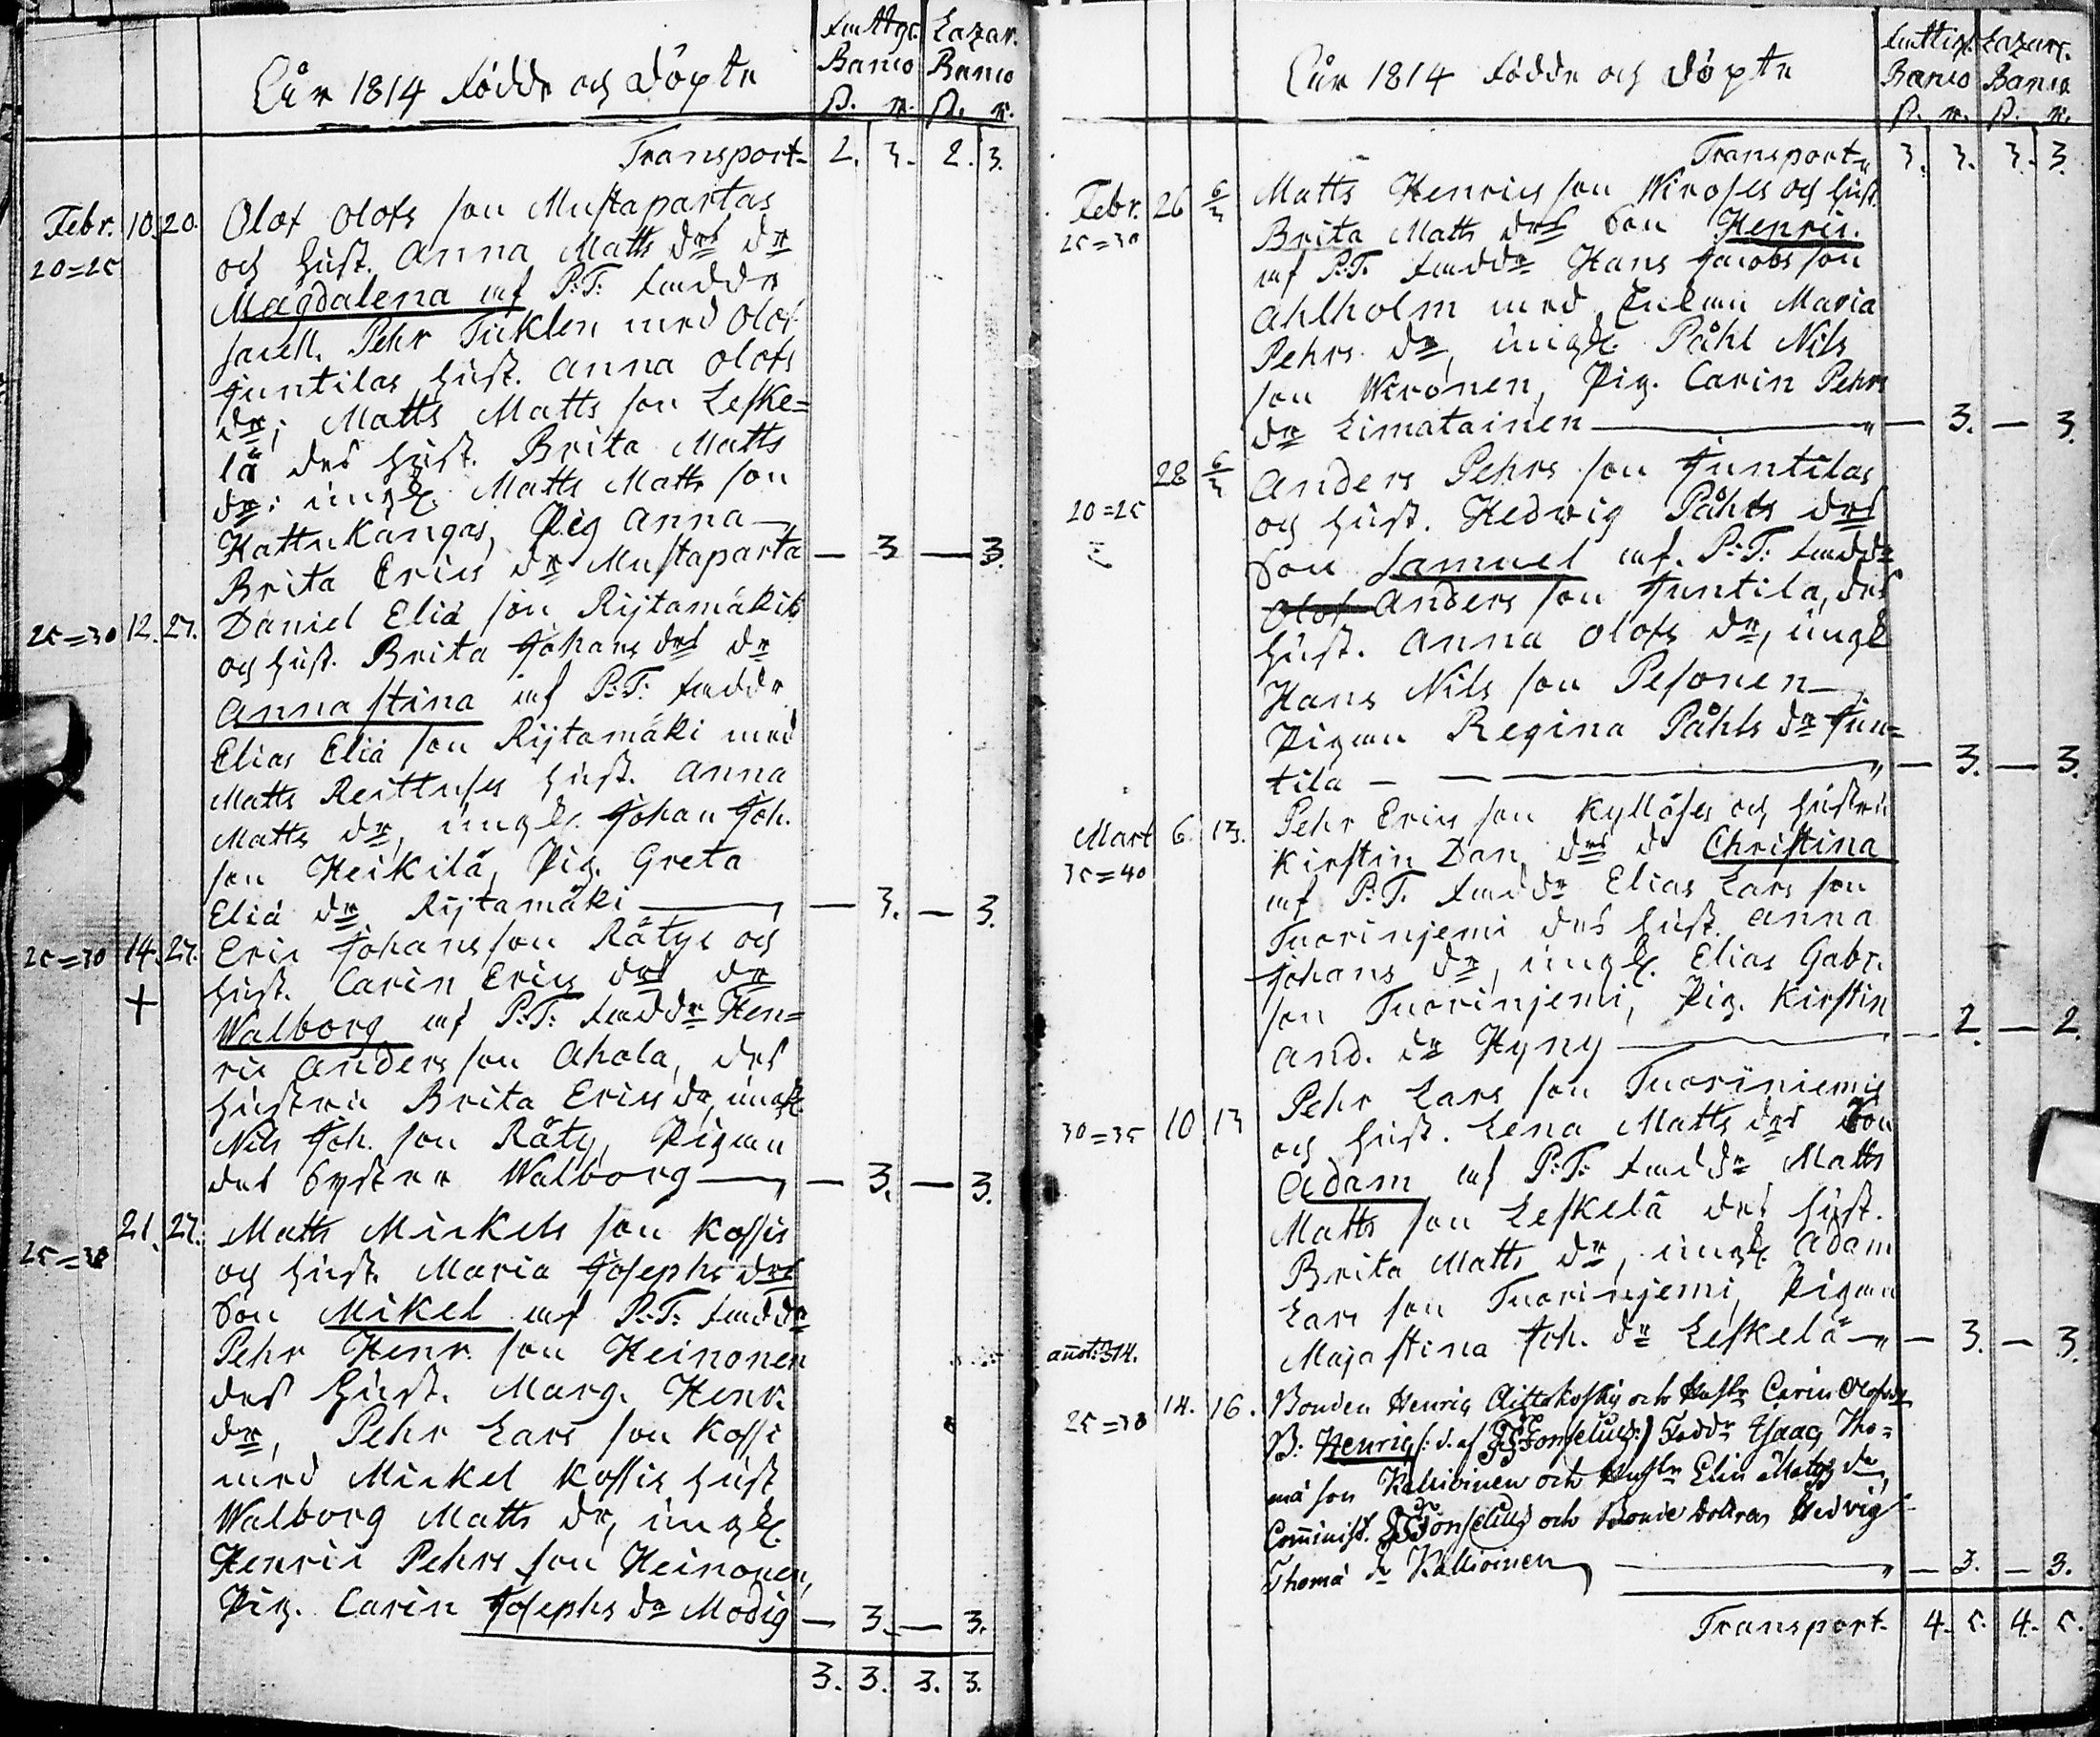 Åår 1814 födde och döpte
Fattige Lazar.
Banco Banco
ß. r. ß. r.
Transport 2. 3. 2. 3.
Febr. 10. 20. Olof Olofs son Mustapartas
20=25 och hust. Anna Matts drs dr
Magdalena af P:T: fadde
Pehr Ticklen med Olof
Juntilas hust. Anna Olofs
dr; Matts Matts son Leske=
lä des hust. Brita Matts
dr: ungk. Matts Matts son
Kattukangas, Pig Anna
Brita Erics dr Mustaparta — 3 — 3.
25=30 12. 27. Daniel Eliä son Rijtamäkis
och hust. Brita Johans drs dr
Anna Stina af P:T: fadde
Elias Eliä son Rijtamäki med
Matts Reittuses hust. Anna
Matts dr, ungk. Johan Joh.
son Heikilä, Pig. Greta
Eliä dr Rijtamäki — 3. — 3.
25=30 14. 27. Eric Johans son Rätys och
+ hust. Carin Erics drs dr
Walborg af P:T: faddr Hen=
ric Anders son Ahola, des
hustru Brita Erics dr, ungk.
Nils Joh. son Räty, Pigan
des Syster Walborg — 3. — 3.
21. 27. Matts Mickels son Kossis
25=30 och hust. Maria Josephs drs
Son Mikel af P:T: faddr
Pehr Henr. son Heinonen
des hust. Marg. Henr.
dr, Pehr Lars son Kossi
med Mickel Kossis hust
Walborg Matts dr, ungk.
Henric Pehrs son Heinonen,
Pig. Carin Josephs dr Modig — 3. — 3.
3. 3. 3. 3.
Åår 1814 födde och döpte
Fattige Lazar.
Banco Banco
ß. r. ß. r.
Transport 3. 3. 3. 3.
Febr. 26 6/3 Matts Henrics son Wiroses och hust.
25=30 Brita Matts drs Son Henric.
af P.T. faddr Hans Jacobs son
Ahlholm med Enkan Maria
Pehrs dr, ungk. Påhl Nils
son Wironen, Pig. Carin Pehrs
dr Limatainen — 3. — 3.
28 6/3 Anders Pehrs son Juntilas
20=25 och hust. Hedwig Påhls drs
Son Samuel af P:T: faddr
Olof Anders son Juntila, des
hust. Anna Olofs dr, ungk
Hans Nils son Pesonen
Pigan Regina Påhls dr Jun=
tila — 3. — 3.
Mart 6. 13. Pehr Erics son Kyllöses och hustru
35=40 Kirstin Dan. drs dr Christina
af P:T. faddr Elias Lars son
Tuorinjemi des hust. Anna
Johans dr, ungk. Elias Gabr.
son Tuorinjemi, Pig. Kirstin
And. dr Hyny — 2. — 2.
Pehr Lars son Tuoriniemis
30=35 10 13 och hust. Lena Matts drs Son
Adam af P:T: faddr Matts
Matts son Leskelä des hust.
Brita Matts dr, ungk. Adam
Lars son Tuorinjemi, Pigan
Maja Stina Joh. dr Leskelä — 3. — 3.
14. 16. Bonden Henric och Hustr Carin Olofs dr
25=30 B: Henric Faddr Isaac Tho=
mä son Kallioinen och Hustr Elin Matts dr
Comminist. och Bonde Dottren Hedvig
Thomä dr Kallioinen — 3. — 3.
Transport 4. 5. 4. 5.